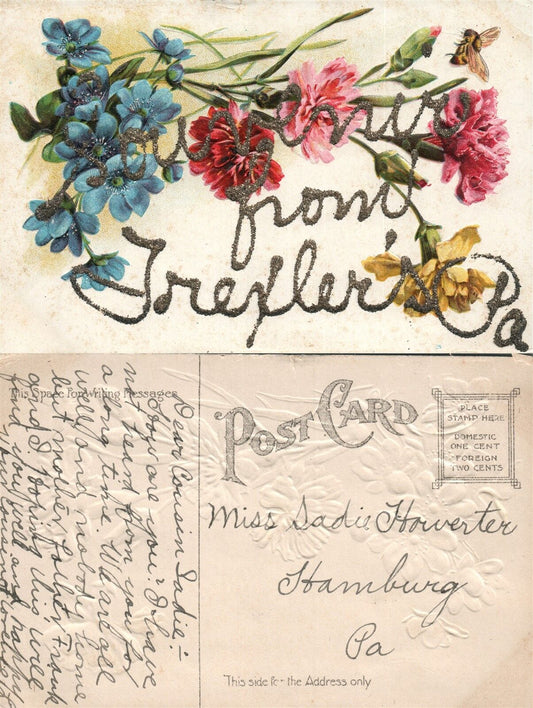 Souvenir
from
Trexler's Pa
This Space For Writing Messages
Dear Cousin Sadie:—
How are you? I have
not heard from you for
a long time. We are all
well and nobody home
but mother, father, Frank
and I. Hoping this will
find you well and happy
Your Cousin
POST CARD
PLACE
STAMP HERE
DOMESTIC
ONE CENT
FOREIGN
TWO CENTS
Miss Sadie Howerter
Hamburg
Pa
This side for the Address only